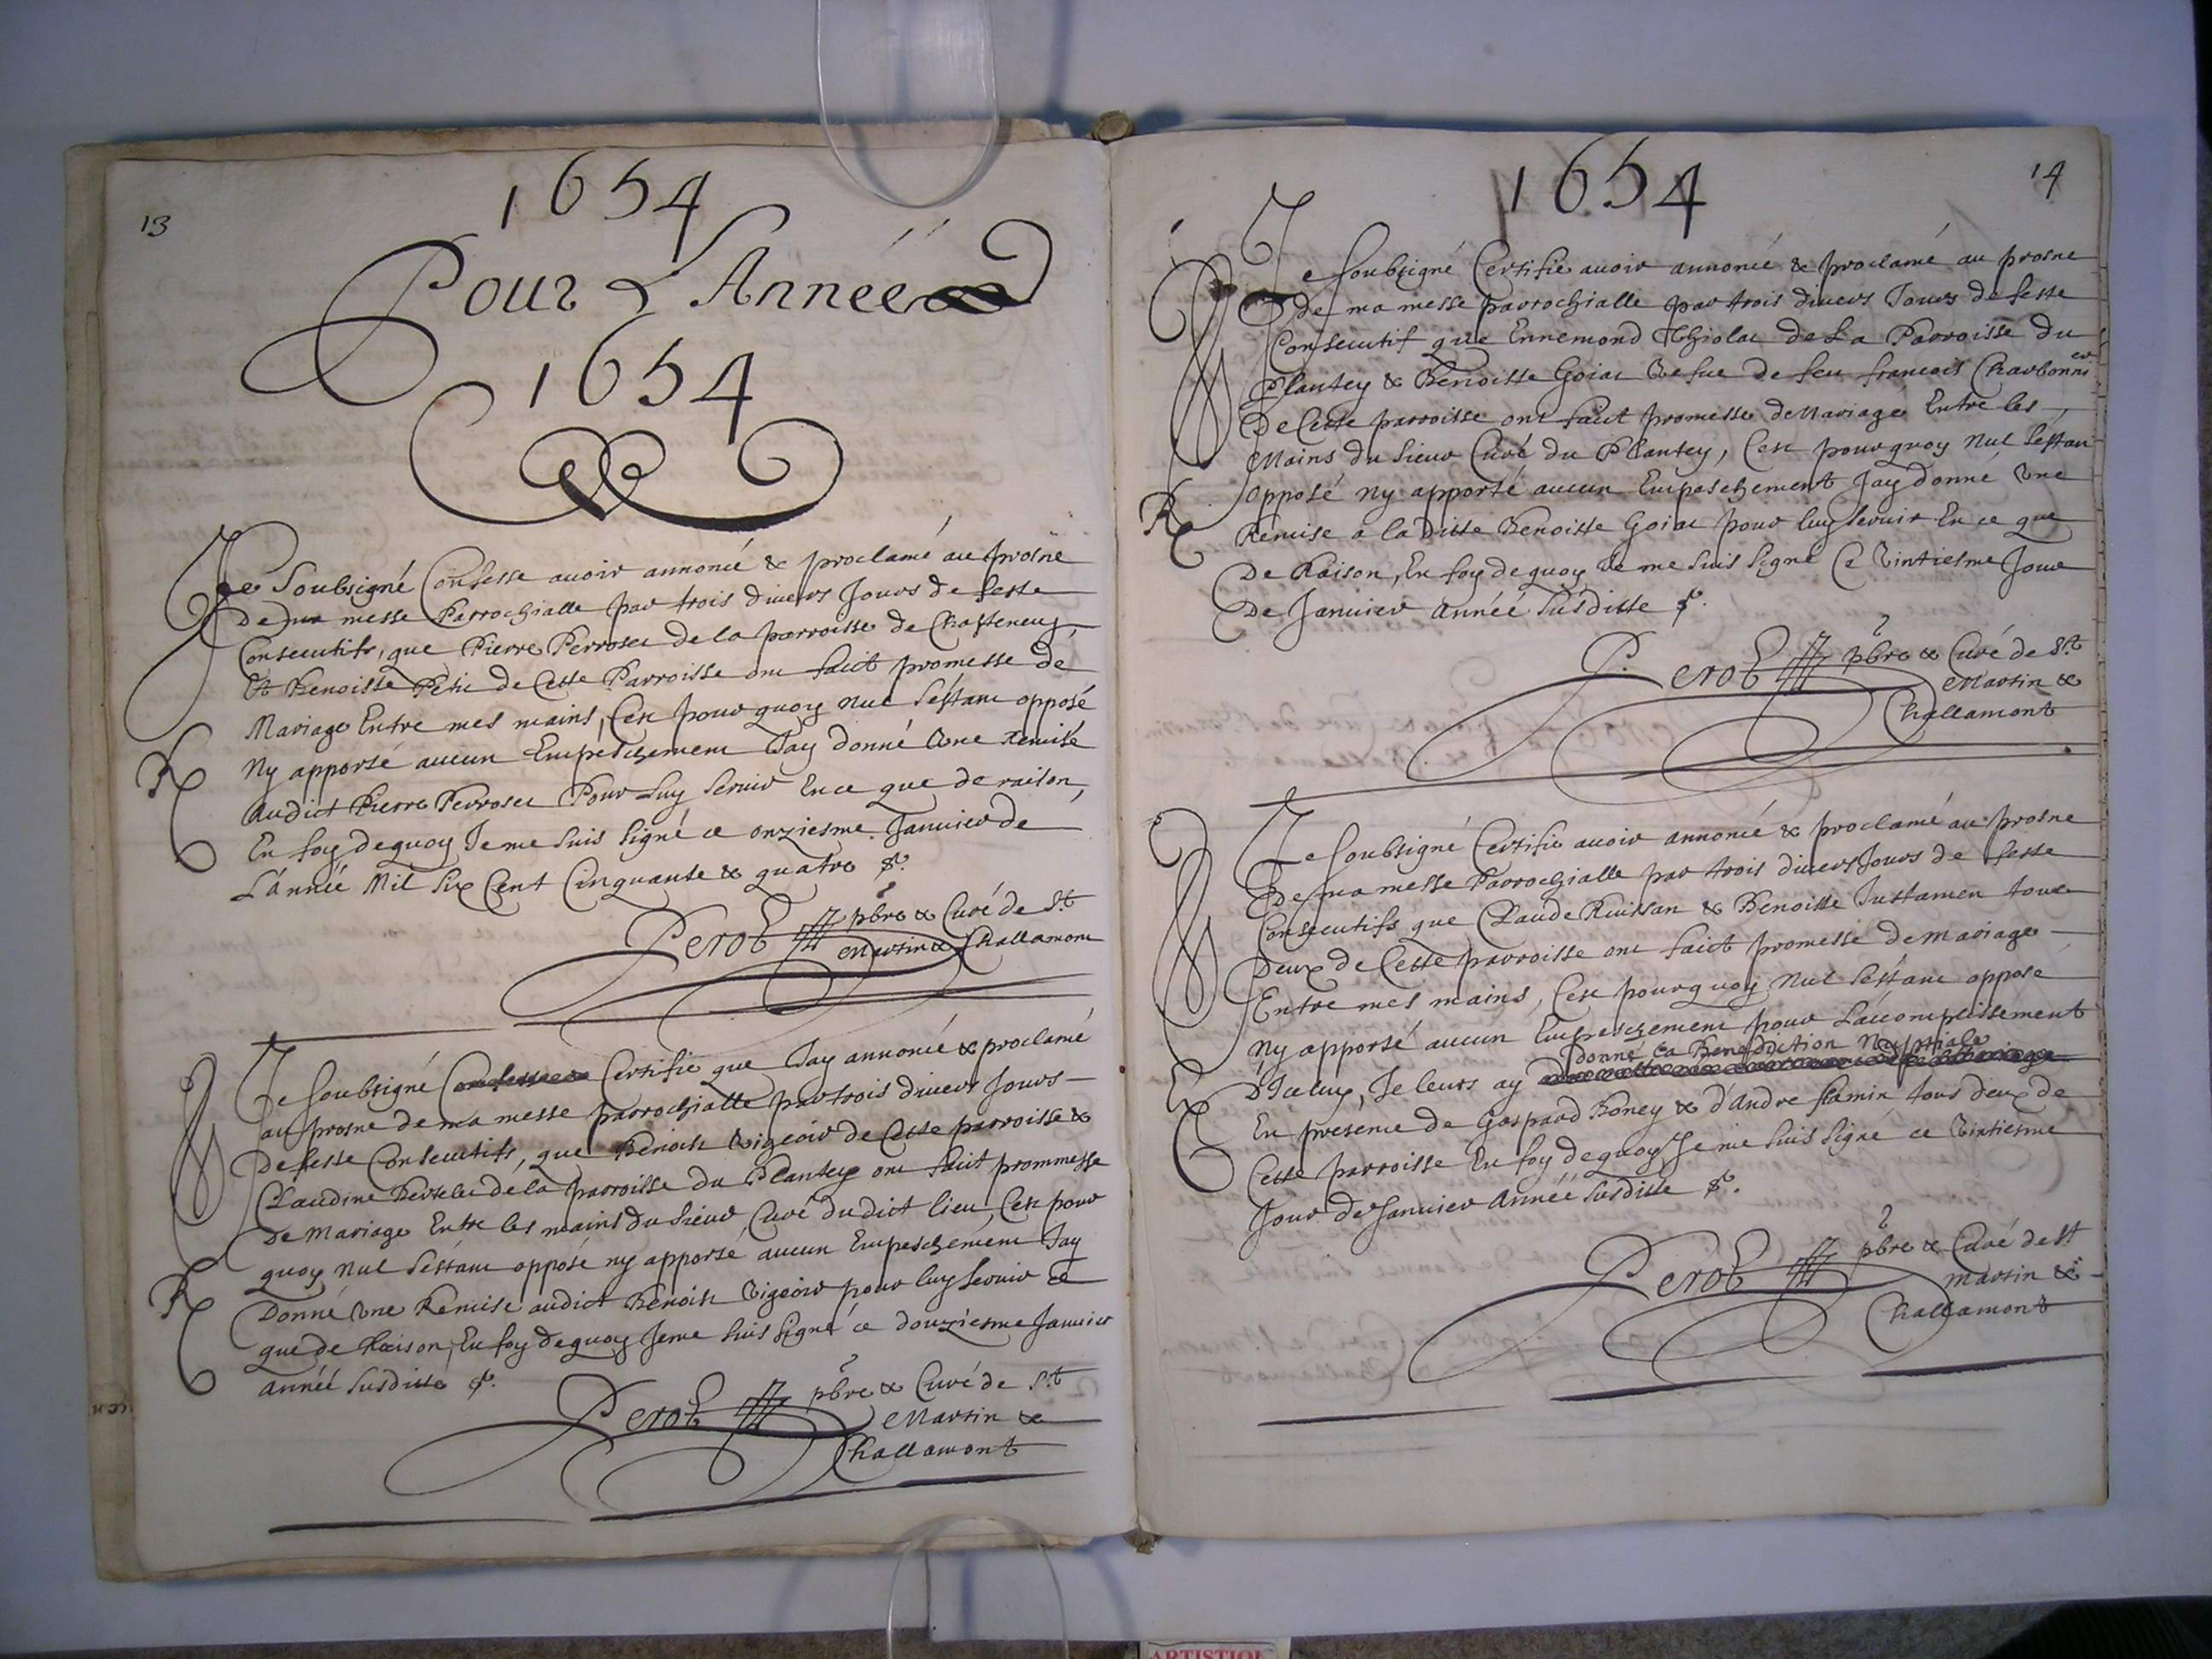 13
1654
Pour L'Année
1654
Je Soubsigné Confesse avoir annoncé & proclamé au prosne
De ma messe Parrochialle par trois divers Jours de feste
Consecutifs, que Pierre Perroset de la parroisse de Chasteneuf
Et Benoiste Petit de Cette Parroisse ont faict promesse de
Mariage Entre mes mains, Cest pourquoy nul s'estant opposé
Ny apporté aucun Empeschement Jay donné Une Remise
Audict Pierre Perroset Pour Luy Servir En ce que de raison,
En foy dequoy Je me suis signé ce onziesme Janvier de
L'année Mil Six Cent Cinquante & quatre &c.
Perot pbre & Curé de St
Martin & Challamont
R
Je soubsigné Certifie que Jay annoncé & proclamé
au prosne de ma messe parrochialle par trois divers Jours
De feste Consecutifs, que Benoist Vigeoir de Cette parroisse &
Claudine Bertelet de la parroisse du Plantey ont faict prommesse
De Mariage Entre les mains du Sieur Curé dudict lieu, Cest pour
quoy Nul s'éstant opposé ny apporté aucun Empeschement Jay
Donné Une Remise audict Benoist Vigeoir pour luy servir ce
que de Raison, En foy dequoy Je me suis signé ce douziesme Janvier
année susditte &c.
R
Perot pbre & Curé de St
Martin &
Challamont
14
1654
Je soubsigné Certifie avoir annoncé & proclamé au prosne
de ma messe parrochialle par trois divers Jours de feste
Consecutif que Ennemond Thiolat de La Parroisse du
Plantey & Benoiste Goiat Vefue de feu francois Charbonnier
De Cette parroisse ont faict promesse de Mariage Entre les
Mains du Sieur Curé du Plantey, Cest pourquoy Nul s'estant
Opposé ny apporté aucun Empeschement Jay donné Une
Remise a la ditte Benoiste Goiat pour luy servir En ce que
De Raison, En foy dequoy Je me suis signé Ce Vintiesme Jour
De Janvier année susditte &c.
R
Perot pbre & Curé de St
Martin &
Challamont
Je soubsigné Certifie avoir annoncé & proclamé au prosne
De ma messe Parrochialle par trois divers Jours de feste
Consecutifs que Claude Ruissan & Benoiste Justamen tous
Deux de Cette parroisse ont faict promesse de mariage
Entre mes mains, Cest pourquoy Nul s'estant opposé
Ny apporté aucun Empeschement pour L'accomplissement
D'Iceluy, Je leurs ay donné La Benediction Nuptiale
En presence de Gaspard Boney & d'André flamin tous deux de
Cette parroisse En foy dequoy Je me suis signé ce Vintiesme
Jour de Janvier Année susditte &c.
Perot pbre & Curé de St
Martin &
Challamont